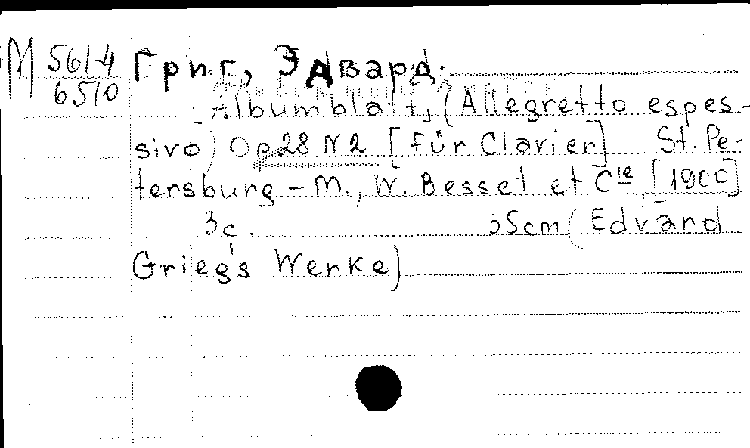 M 561-4 Григ, Эдвард.
6510
Albumblatt, (Allegretto espes-
sivo) Op 28 N 2 [für Clavier] St. Pe-
tersburg - M., W. Bessel et Cie, [1900]
3 c. 35 cm (Edvard
Grieg's Werke)